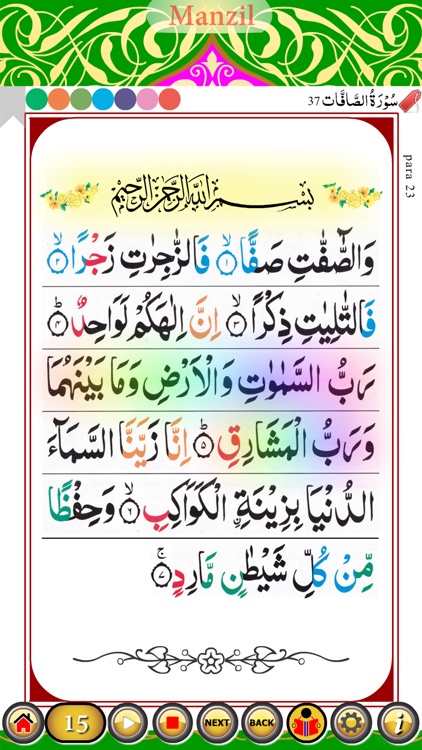 Manzil
سُوْرَةُ الصَّافَّات 37
para 23
بِسْمِ اللهِ الرَّحْمٰنِ الرَّحِيْمِ
وَالصّٰٓفّٰتِ صَفًّا ۙ﴿۱﴾ فَالزّٰجِرٰتِ زَجْرًا ۙ﴿۲﴾
فَالتّٰلِيٰتِ ذِكْرًا ۙ﴿۳﴾ اِنَّ اِلٰهَكُمْ لَوَاحِدٌ ؕ﴿۴﴾
رَبُّ السَّمٰوٰتِ وَالْاَرْضِ وَمَا بَيْنَهُمَا
وَرَبُّ الْمَشَارِقِ ؕ﴿۵﴾ اِنَّا زَيَّنَّا السَّمَآءَ
الدُّنْيَا بِزِيْنَةِ ۟الْكَوَاكِبِ ۙ﴿۶﴾ وَحِفْظًا
مِّنْ كُلِّ شَيْطٰنٍ مَّارِدٍ ۚ﴿۷﴾
15
NEXT
BACK
i